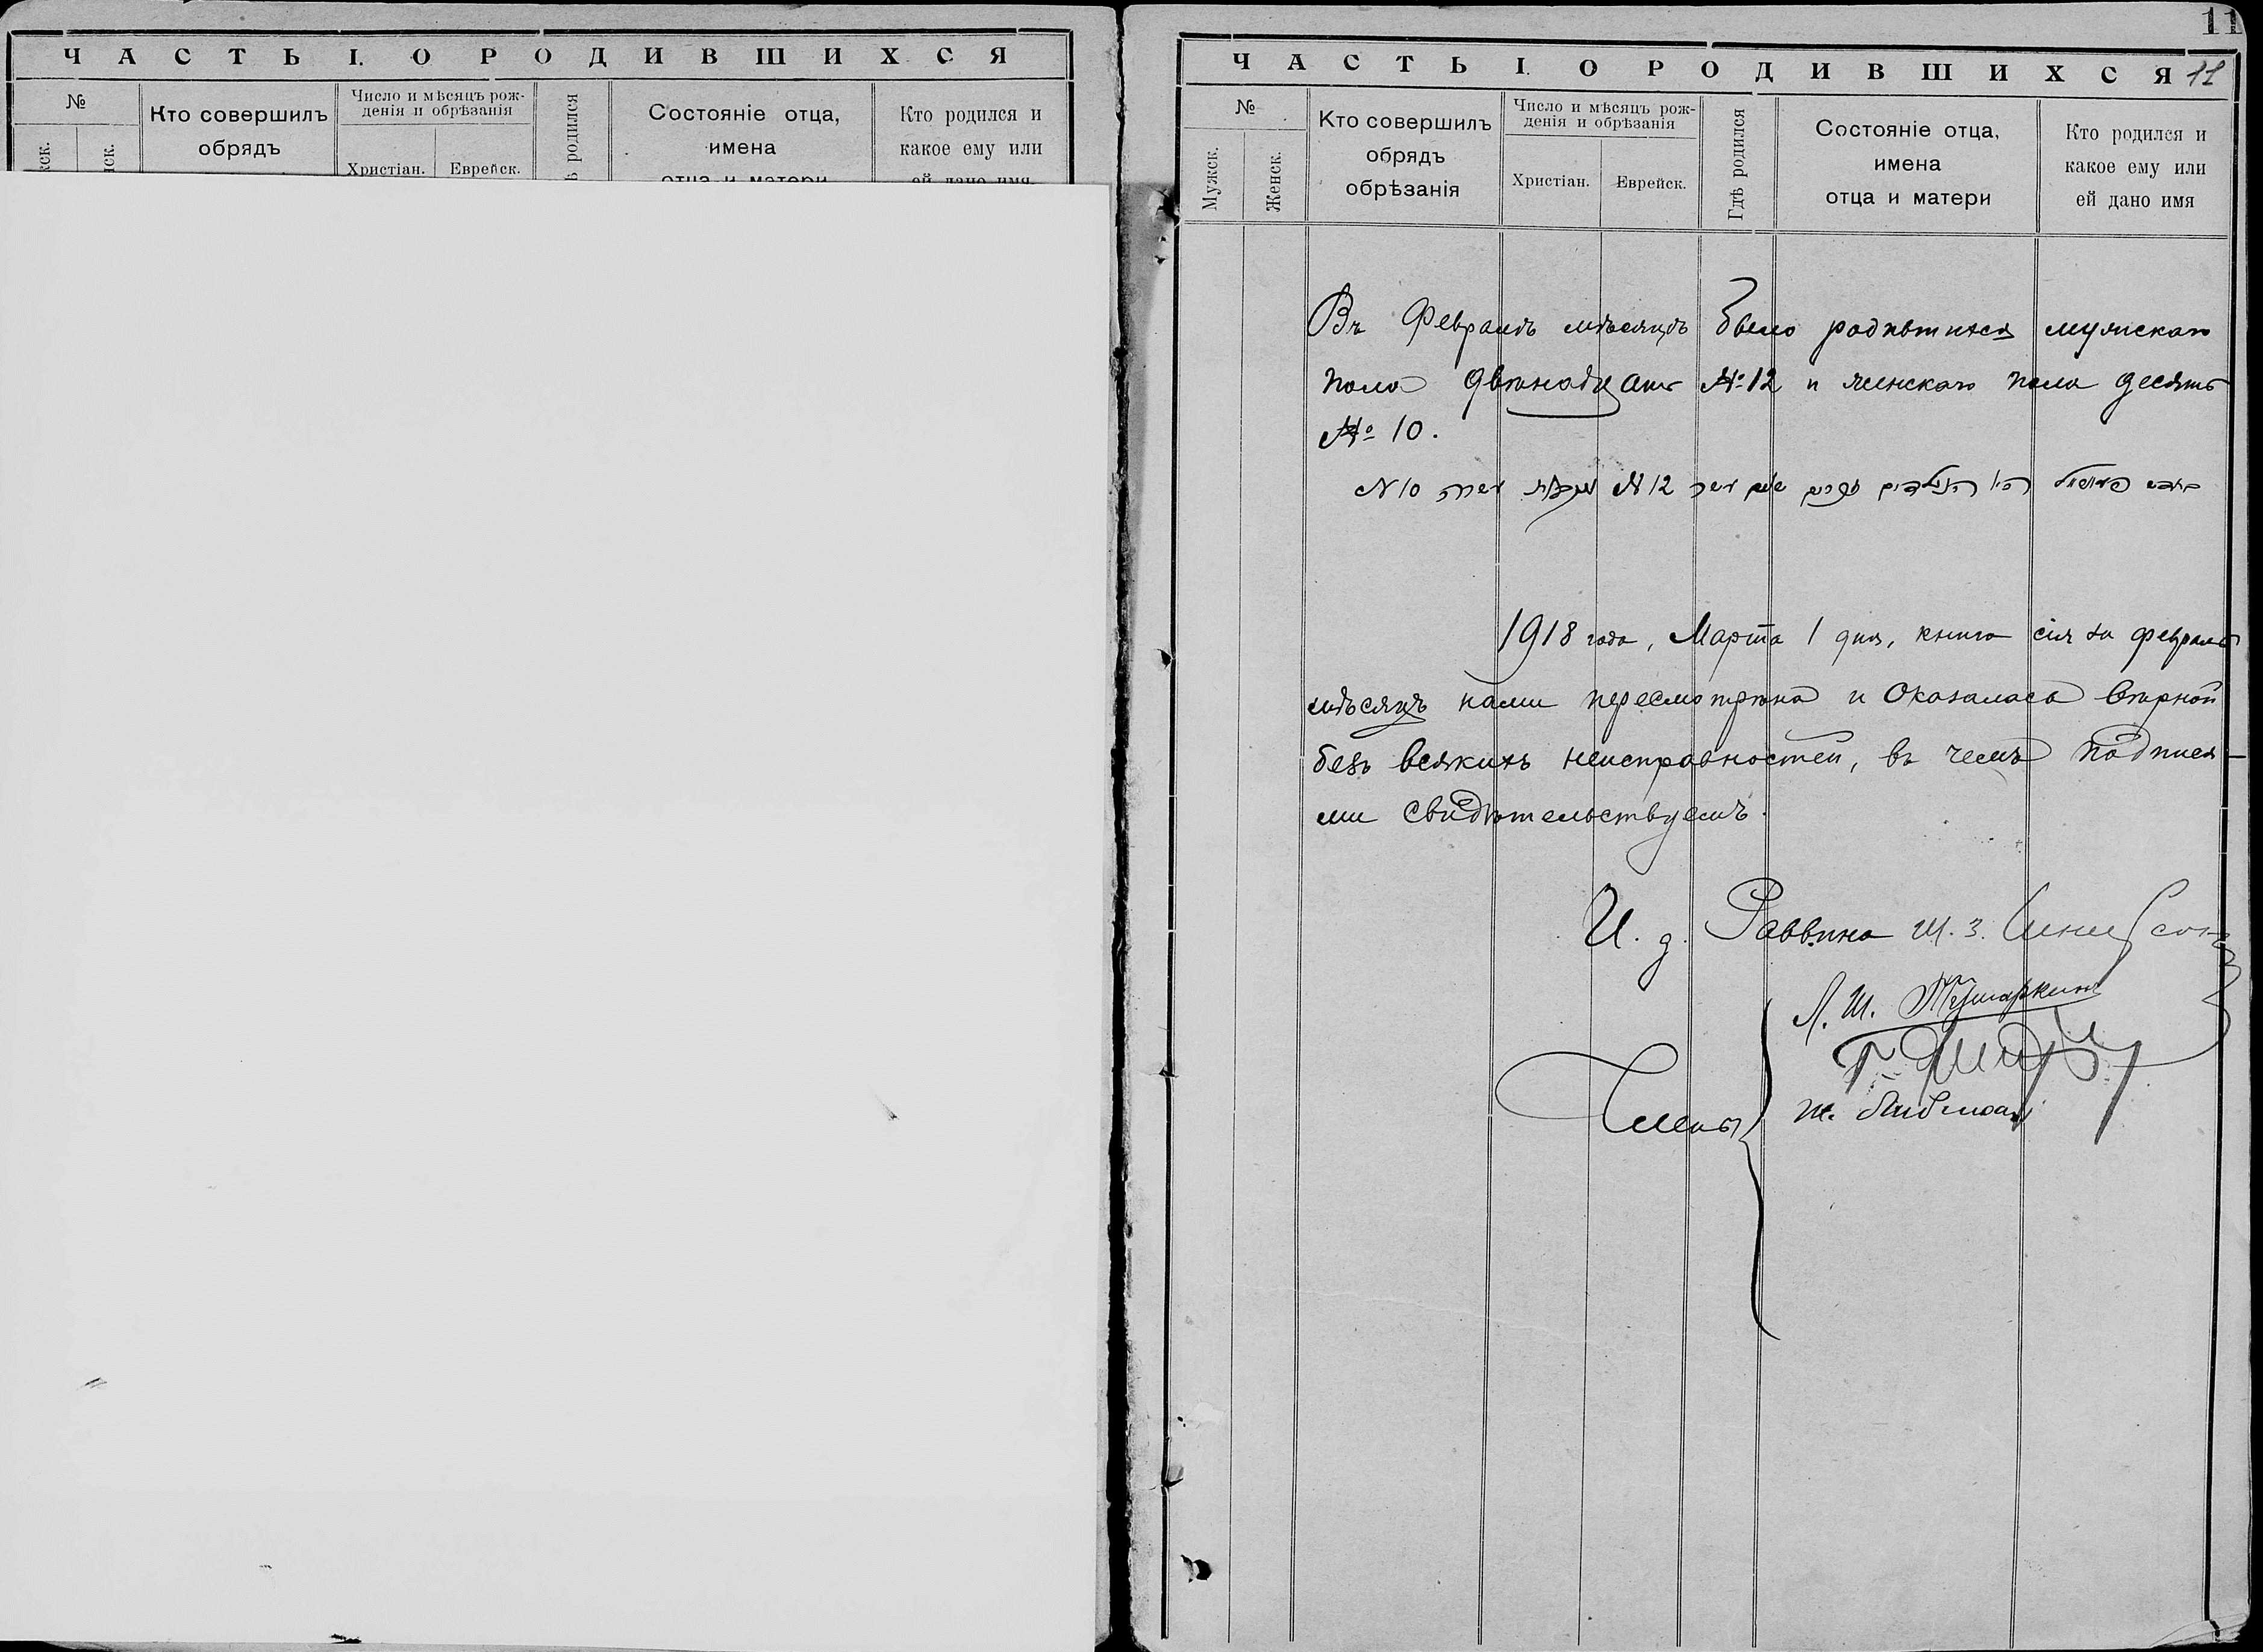 ЧАСТЬ I. О РОДИВШИХСЯ
№
Кто совершилъ
обрядъ
Число и мѣсяцъ рож-
денія и обрѣзанія
Христіан.
Еврейск.
родился
Состояніе отца,
имена
отца и матери
Кто родился и
какое ему или
ей дано имя
11
ЧАСТЬ I. О РОДИВШИХСЯ 11
№
Мужск.
Женск.
Кто совершилъ
обрядъ
обрѣзанія
Число и мѣсяцъ рож-
денія и обрѣзанія
Христіан.
Еврейск.
Гдѣ родился
Состояніе отца,
имена
отца и матери
Кто родился и
какое ему или
ей дано имя
Въ Февралѣ мѣсяцѣ было родившихся мужскаго
пола двѣнадцать № 12 и женскаго пола десять
№ 10.
N 12 N 10
1918 года, Марта 1 дня, книга сія за февраль
мѣсяцъ нами пересмотрѣна и оказалась вѣрной
безъ всякихъ неисправностей, въ чемъ подпися-
ми свидѣтельствуемъ.
И. д. Раввина Ш. З.
Л. Ш.
Члены